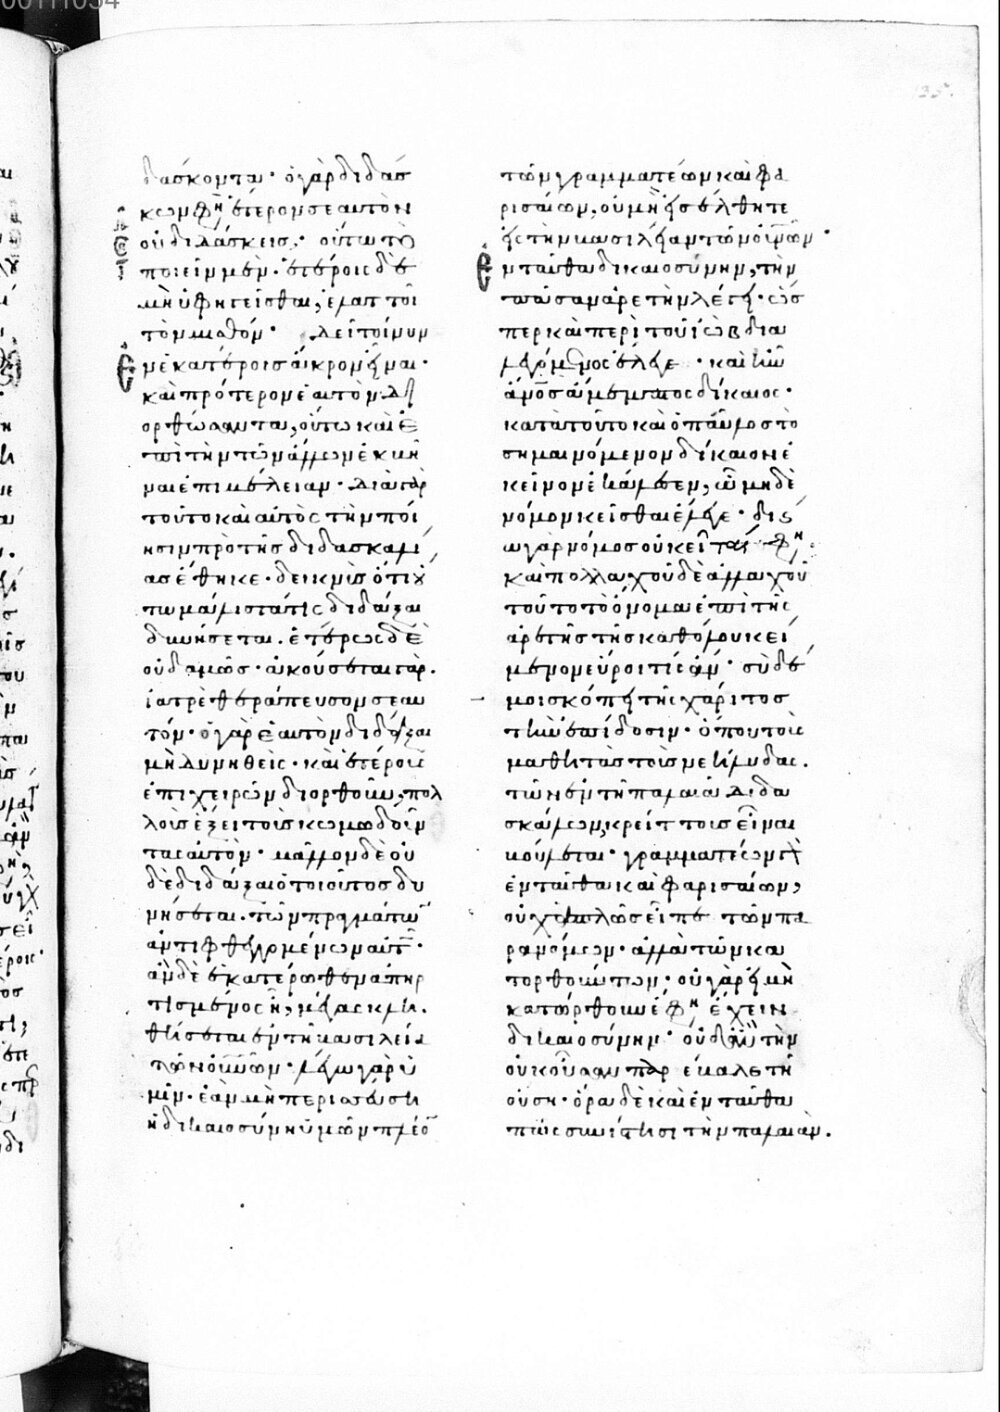 δάσκονται· ὁ γὰρ διδάσ
κων φη ἕτερον σεαυτὸν
οὐ διδάσκεις· οὕτω τὸ
ποιεῖν μὲν· ἑτέροις δὲ
μὴ ὑφηγεῖσθαι, ἐλαττοῖ
τὸν μισθόν· δεῖ τοίνυν
ἐν ἑκατέροις ἄκρον εἶναι·
καὶ πρότερον ἑαυτὸν δι
ορθώσαντα, οὕτω καὶ ἐ
πὶ τὴν τῶν ἄλλων ἐκκιν
ναι ἐπιμέλειαν· διὰ γὰρ
τοῦτο καὶ αὐτὸς τὴν ποί
ησιν πρὸ τῆς διδασκαλί
ας ἔθηκε· δεικνὺς ὅτι οὕ
τω μάλιστά τις διδάξαι
δυνήσεται. ἑτέρως δὲ
οὐδαμῶς· ἀκούσεται γὰρ.
ἰατρὲ θεράπευσον σεαυ
τόν· ὁ γὰρ ἑαυτὸν διδάξαι
μὴ δυνηθεὶς· καὶ ἑτέρους
ἐπιχειρῶν διορθοῦν, πολ
λοὺς ἕξει τοὺς κωμωδοῦν
τας αὐτόν· μᾶλλον δὲ οὐ
δὲ διδάξαι ὁ τοιοῦτος δυ
νήσεται. τῶν πραγμάτων
ἀντιφθεγγομένων αὐτῶ·
ἂν δὲ ἑκατέρωθεν ἀπηρ
τισμένος ἦ, μέγας κλη.
θήσεται ἐν τῆ βασιλεία
τῶν οὐνῶν· λέγω γὰρ ὑ
μῖν· ἐὰν μὴ περισσεύση
ἡ δικαιοσύνη ὑμῶν πλέον
τῶν γραμματέων καὶ φα
ρισαίων, οὐ μὴ εἰσέλθητε
εἰς τὴν βασιλείαν τῶν οὐνῶν·
ἐνταῦθα δικαιοσύνην, τὴν
πᾶσαν ἀρετὴν λέγει· ὥσ
περ καὶ περὶ τοῦ ἰὼβ δια
λεγόμενος ἔλεγε· καὶ ἦν
ἄνος ἄμεμπτος δίκαιος·
κατὰ τοῦτο καὶ ὁ παῦλος τὸ
σημαινόμενον δίκαιον ἐ
κεῖνον ἐκάλεσεν, ὧ μηδὲ
νόμον κεῖσθαι ἔλεγε· δι
ω γὰρ νόμος οὐ κεῖται φη·
καὶ πολλαχοῦ δὲ ἀλλαχοῦ
τοῦτο τὸ ὄνομα ἐπὶ τῆς
ἀρετῆς τῆς καθόλου κεί
μενον εὕροι τις ἄν· σὺ δέ
μοι σκόπει τῆς χάριτος
τὴν ἐπίδοσιν· ὅπου τοὺς
μαθητὰς τοὺς νεήλυδας.
τῶν ἐν τῆ παλαιᾶ διδα
σκάλων, κρείττους εἶναι
βούλεται· γραμματέων γὰρ
ἐνταῦθα καὶ φαρισαίων,
οὐχ ἁπλῶς εἶπε τῶν πα
ρανόμων· ἀλλὰ τῶν κα
τορθούντων· οὐ γὰρ εἰ μὴ
κατώρθουν ἔφη ἔχειν
δικαιοσύνην· οὐδ' ἂν τὴν
οὐκ οὖσαν παρέβαλε τῆ
οὔση· ὅρα δὲ καὶ ἐνταῦθα
πῶς συνίστησι τὴν παλαιὰν.